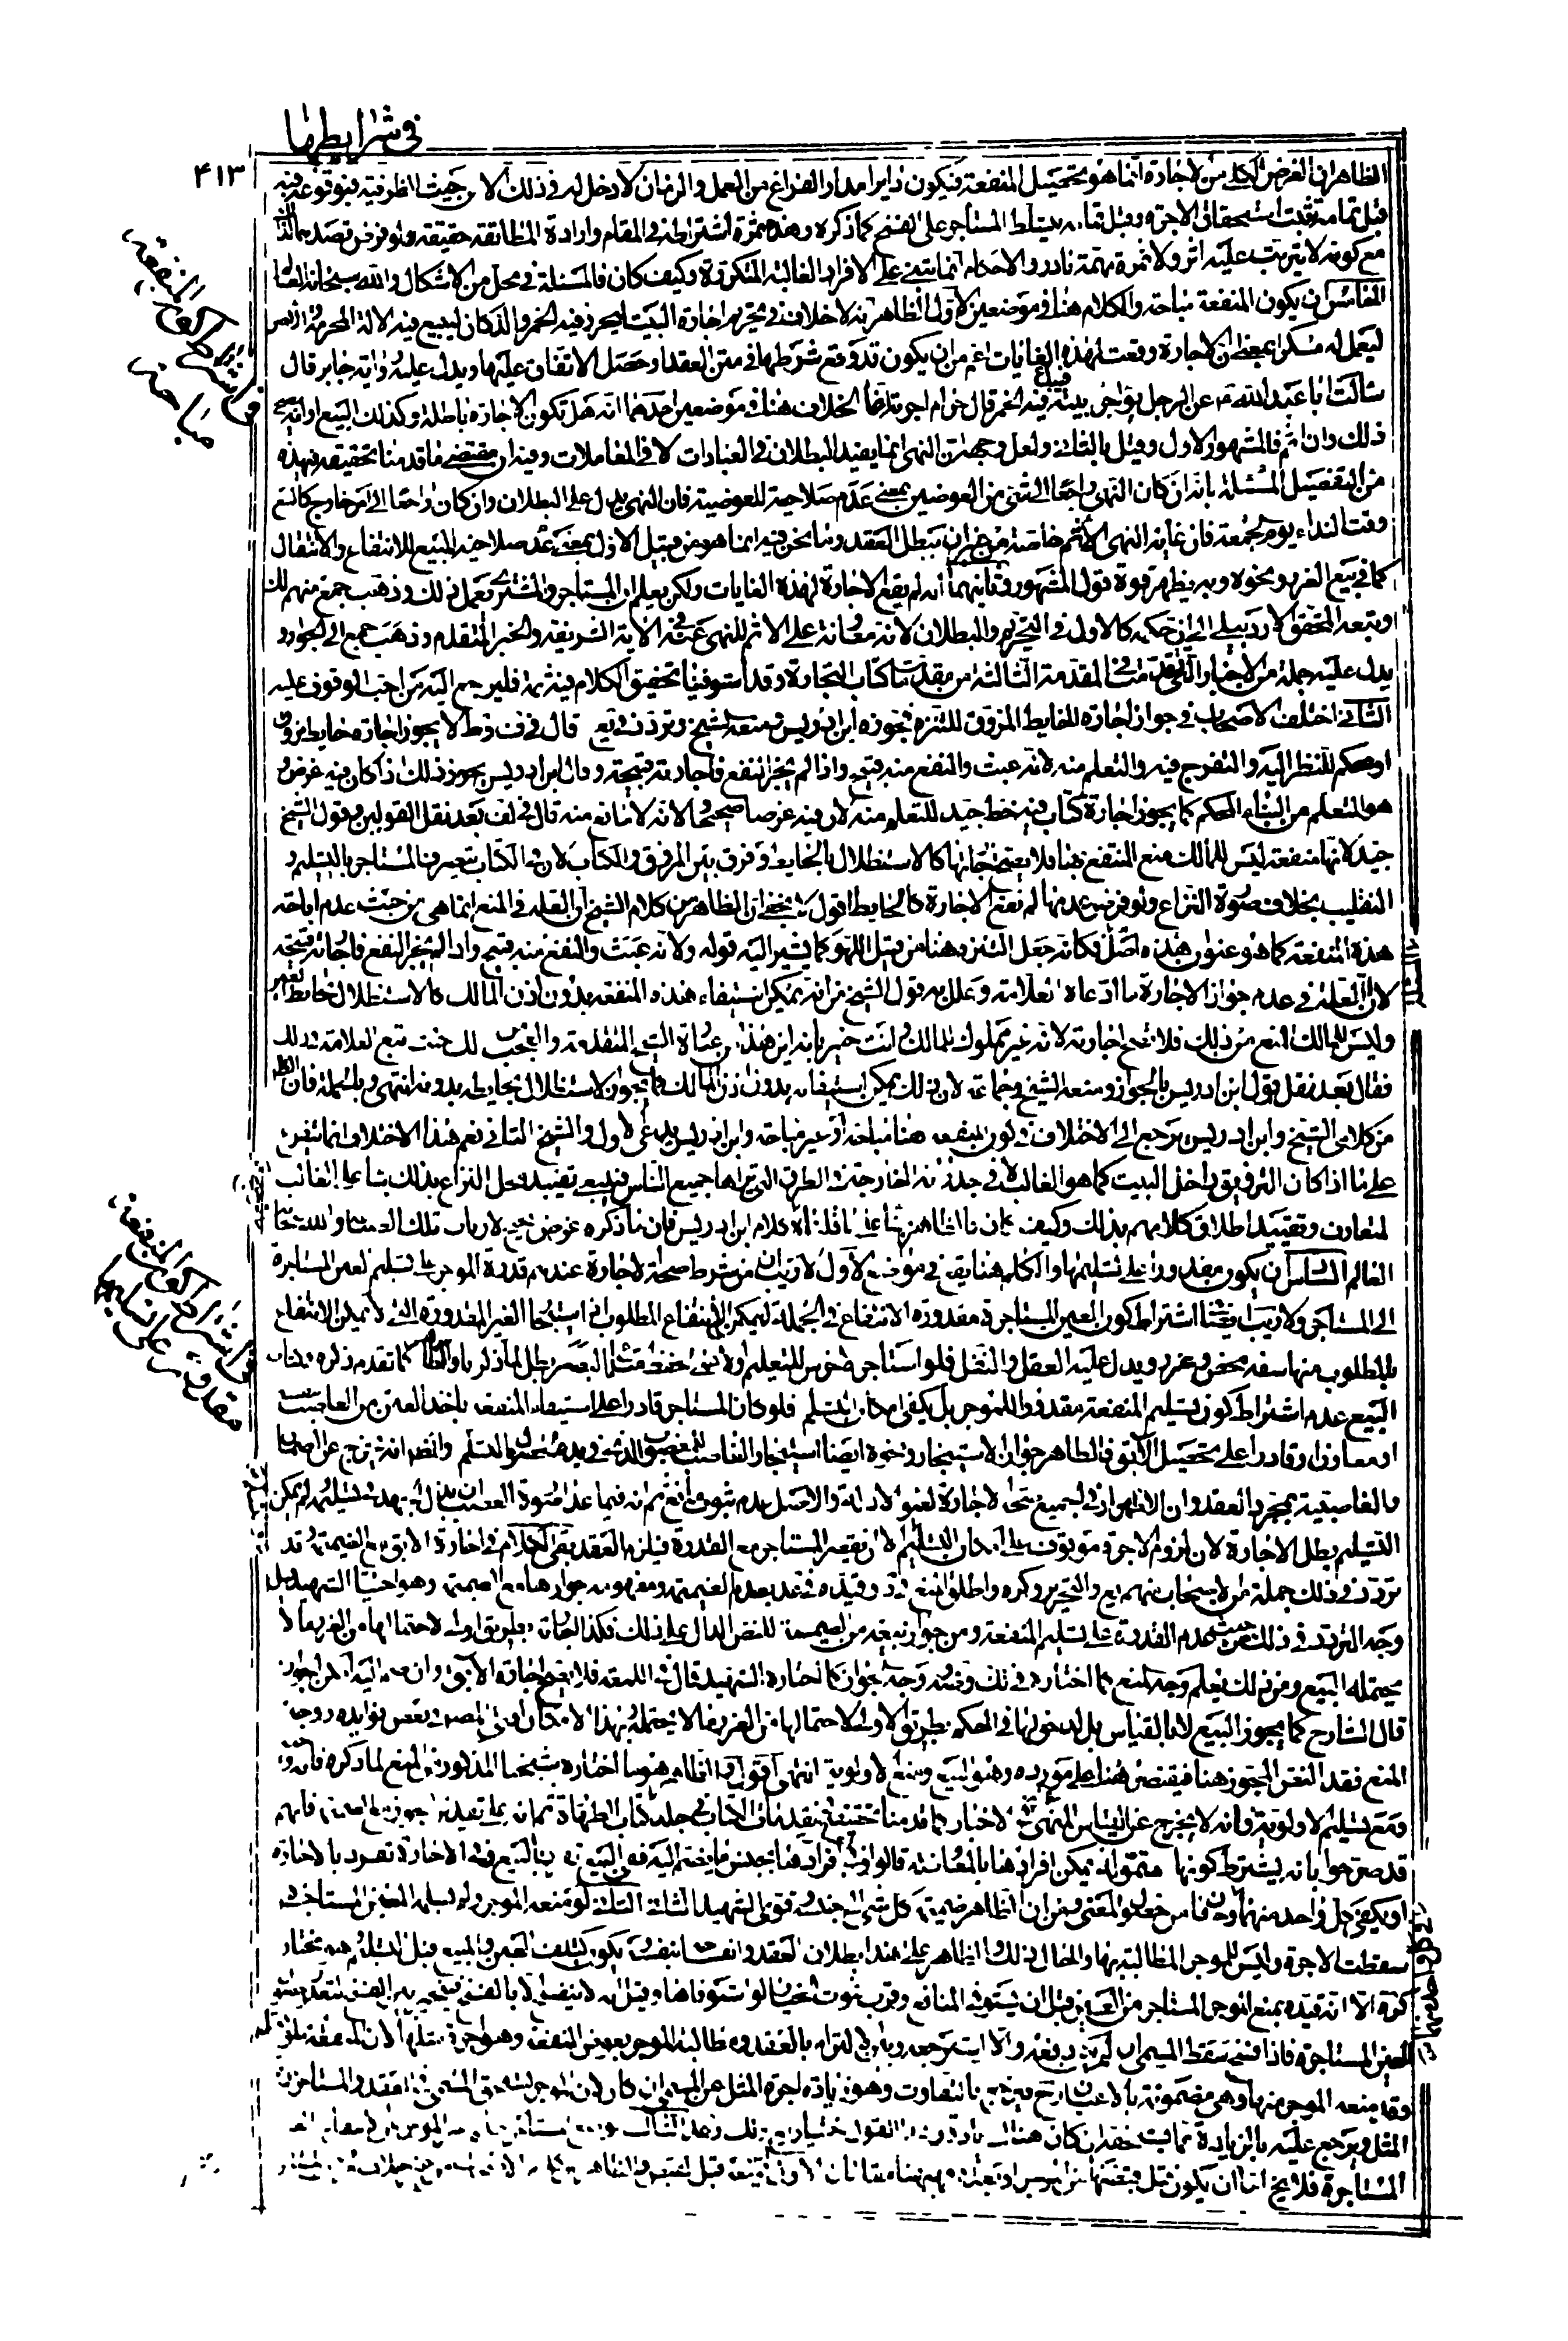 في شرايطها
۴۱۳
الظاهر ان الغرض الكلي من الاجارة انما هو تحصيل المنفعة فيكون دايرا مدار الفراغ من العمل والزمان لا دخل له في ذلك الا من حيث الظرفية فبوقوعه فيه
قبل تمامه يثبت استحقاق الاجرة وقبل تمامه يتسلط المستاجر على الفسخ كما ذكره وهذه ثمرة اشتراطه في المقام وارادة المطابقة حقيقة ولو فرض قصدهما
مع كونه لا يترتب عليه اثر ولا ثمرة مهمة نادر والاحكام انما تبتني على الافراد الغالبة المتكررة وكيف كان فالمسئلة في محل من الاشكال والله سبحانه العالم
الخامس ان يكون المنفعة مباحة والكلام هنا في موضعين الاول الظاهر انه لا خلاف في تحريم اجارة البيت ليحرز فيه الخمر والدكان ليبيع فيه الالة المحرمة
ليعمل له مسكرا بمعنى ان الاجارة وقعت لهذه الغايات اعم من ان يكون قد وقع شرطها في متن العقد او حصل الاتفاق عليها ويدل عليه رواية جابر قال
سالت ابا عبد الله ع عن الرجل يؤاجر بيته فيباع فيه الخمر قال حرام اجرته انما الخلاف هنا في موضعين احدهما انه هل تكون الاجارة باطلة وكذلك البيع او انه يصح
ذلك وان اثم فالمشهور الاول وقيل بالثاني ولعل وجهه ان النهي انما يفيد البطلان في العبادات لا في المعاملات وفيه ان مقتضى ما قدمنا تحقيقه في هذه
من التفصيل المسئلة بانه ان كان النهي راجعا الى شيء من العوضين بمعنى عدم صلاحيته للعوضية فان النهي يدل على البطلان وان كان راجعا الى امر خارج كالبيع
وقت النداء يوم الجمعة فان غاية النهي الاثم خاصة من غير ان يبطل العقد وما نحن فيه انما هو من قبيل الاول بمعنى عدم صلاحية المبيع للانتفاع والانتقال
كما في بيع الغرر ونحوه وبه يظهر قوة قول المشهور وثانيهما انه لم يقع الاجارة لهذه الغايات ولكن يعلم ان المستاجر والمشتري يعمل ذلك وذهب جمع منهم
وتبعه المحقق الاردبيلي الى ان حكمه كالاول في التحريم والبطلان لانه معاونة على الاثم للنهي عنه في الاية الشريفة والخبر المتقدم وذهب جمع الى الجواز و
يدل عليه جملة من الاخبار التي تقدمت في المقدمة الثالثة من مقدمات كتاب التجارة وقد استوفينا تحقيق الكلام فيه ثمة فليرجع اليه من احب الوقوف عليه
الثاني اختلف الاصحاب في جواز اجارة الحايط المزوق للتنزه فجوزه ابن ادريس ومنعه الشيخ وتردد في يع قال في ف وط لا يجوز اجارة حايط مزوق
او محكم للنظر اليه والتفرج فيه والتعلم منه لانه عبث والنفع منه قبيح واذا لم يجز النفع فاجارته قبيحة وقال ابن ادريس يجوز ذلك اذا كان فيه غرض و
هو التعلم من البناء المحكم كما يجوز اجارة كتاب فيه خط جيد للتعلم منه لان فيه غرضا صحيحا ولانه لا مانع منه قال في لف بعد نقل القولين وقول الشيخ
جيد لانها منفعة ليس للمالك منع المنتفع بها فلا يصح اجارتها كالاستظلال بالحايط وفرق بين المزوق والكتاب لان في الكتاب يتصرف المستاجر بالتسليم و
التقليب بخلاف صورة النزاع ولو فرض عدمها لم تقع الاجارة كالحايط اقول لا يخفى ان الظاهر من كلام الشيخ ان العلة في المنع انما هي من حيث عدم اباحة
هذه المنفعة كما هو عنوان هذه فكانه جعل التنزه هنا من قبيل اللهو كما يشير اليه قوله ولانه عبث والنفع منه قبيح واذا لم يجز النفع فاجارته قبيحة
لا ان العلة في عدم جواز الاجارة ما ادعاه العلامة وعلل به قول الشيخ من انه يمكن استيفاء هذه المنفعة بدون اذن المالك كالاستظلال بحايط الغير
وليس للمالك المنع من ذلك فلا تصح اجارته لانه غير مملوك للمالك وانت خبير بانه اين هذا من عبارة الشيخ المتقدمة والعجب لك حيث تبع العلامة في ذلك
فقال بعد نقل قول ابن ادريس بالجواز ومنعه الشيخ وجماعة لان ذلك يمكن استيفاؤه بدون اذن المالك كما يجوز الاستظلال بحايطه بدونه انتهى وبالجملة فان الظاهر
من كلامي الشيخ وابن ادريس يرجع الى الاختلاف في كون المنفعة هنا مباحة او غير مباحة وابن ادريس يدعي الاول والشيخ الثاني نعم هذا الاختلاف انما يتفرع
على ما اذا كان التزويق داخل البيت كما هو الغالب لا في جدرانه الخارجة في الطرق التي يراها جميع الناس فينبغي تقييد محل النزاع بذلك بناء على الغالب
المتعارف وتقييد اطلاق كلامهم بذلك وكيف كان فالظاهر بناء على ما قلناه كلام ابن ادريس فان ما ذكره غرض صحيح لارباب تلك الصناعة والله سبحانه
العالم السادس ان يكون مقدورا على تسليمها والكلام هنا يقع في مواضع الاول لا ريب ان من شرط صحة الاجارة عندهم قدرة الموجر على تسليم العين المستاجرة
الى المستاجر ولا ريب ايضا في اشتراط كون العين المستاجرة مقدورة الانتفاع في الجملة ليمكن الانتفاع المطلوب اذ استيجار الغير المقدورة التي لا يمكن الانتفاع
بالمطلوب منها سفه محض وغرر ويدل عليه العقل والنقل فلو استاجر الاخرس للتعليم او الاعمى لحفظ متاع بالبصر بطل لما ذكر كما تقدم ذكره في كتاب
البيع عدم اشتراط كون تسليم المنفعة مقدورا للموجر بل يكفي امكان التسلم فلو كان المستاجر قادرا على استيفاء المنفعة باخذ العين من الغاصب
او معاونا وقادرا على تحصيل الابق فالظاهر جواز الاستيجار ونحوه ايضا استيجار الغاصب للمغصوب الذي في يده لحصول التسلم والظاهر انه يخرج عن الضمان
بالغاصبية بمجرد العقد وان الاظهر في الجميع صحة الاجارة لعموم الادلة والاصل عدم ثبوت مانع ثم انه فيما عدا صورة الغصب ان بذل الجهد في تسليمه ولم يمكن
التسليم بطل الاجارة لان لزوم الاجرة موقوف على امكان التسليم الا ان يقصر المستاجر مع القدرة فيلزم العقد بقي الكلام في اجارة الابق مع الضميمة وقد
تردد في ذلك جملة من الاصحاب منهم يع والتحرير وكره واطلق المنع في د وقيده في عد بعدم الضميمة ومفهومه جوازها مع الضميمة وهو اختيار الشهيد قيل
وجه التردد في ذلك من حيث عدم القدرة على تسليم المنفعة ومن جواز بيعه مع الضميمة للنص الدال على ذلك فكذا اجارته بطريق اولى لاحتمالها من الغرر ما لا
يحتمله البيع ومن ذلك يعلم وجه المنع كما اختاره في لك ووجه الجواز كما اختاره الشهيد قال في اللمعة فلا تصح اجارة الابق وان ضم اليه امكن الجواز
قال الشارح كما يجوز البيع لا بالقياس بل لدخولها في الحكم بطريق اولى لاحتمالها من الغرر ما لا يحتمله وبهذا الامكان افتى المصنف في بعض فوايده ووجه
المنع فقد النص المجوز هنا فيقتصر هنا على مورده وهو البيع ومنع الاولوية انتهى اقول الظاهر هو ما اختاره شيخنا المذكور من المنع لما ذكره فانه
ومع تسليم الاولوية فانه لا يخرج عن القياس المنهي عنه في الاخبار كما قدمنا تحقيقه في مقدمات الكتاب في جلد كتاب الطهارة ثم انه على تقدير الجواز مع الضميمة فانهم
قد صرحوا بانه يشترط كونها متمولة يمكن افرادها بالمعاوضة قالوا وفي افرادها بجنس ما يضم اليه ففي البيع تفرد بالبيع وفي الاجارة تفرد بالاجارة
او يكفي كل واحد منهما وجهان من حصول المعنى ومن ان الظاهر ضميمة كل شيء الى جنسه وقوى الشهيد الثاني الثاني لو منعه الموجر ولم يسلمه العين المستاجرة
سقطت الاجرة وليس للموجر المطالبة بها والحال ذلك والظاهر على هذا بطلان العقد وانفساخه بنفسه فيكون كتلف العين والمبيع قبل التسليم وهو مختار
كرة الا انه قيده بمنع الموجر المستاجر من العين قبل ان يستوفي المنافع وقرب ثبوت الخيار لو استوفاها وقيل انه لا ينفسخ الا بالفسخ فيتخير بين الفسخ لتعذر
العين المستاجرة فاذا فسخ سقط المسمى ان لم يكن دفعه والا استرجعه وبين الالتزام بالعقد ومطالبة الموجر بعوض المنفعة وهو اجرة مثلها لان المنفعة
وقد منعه الموجر منها وهي مضمونة بالاعيان فيرجع بالتفاوت وهو زيادة اجرة المثل عن المسمى ان كان لان الموجر يستحق المسمى في العقد والمستاجر
المثل ويرجع عليه بالزيادة
المستاجرة فلا يخ اما ان يكون قبل قبضها من الموجر او بعده
في اشتراط كون المنفعة
مباحة
في اشتراط كون المنفعة
مقدورا على تسليمها